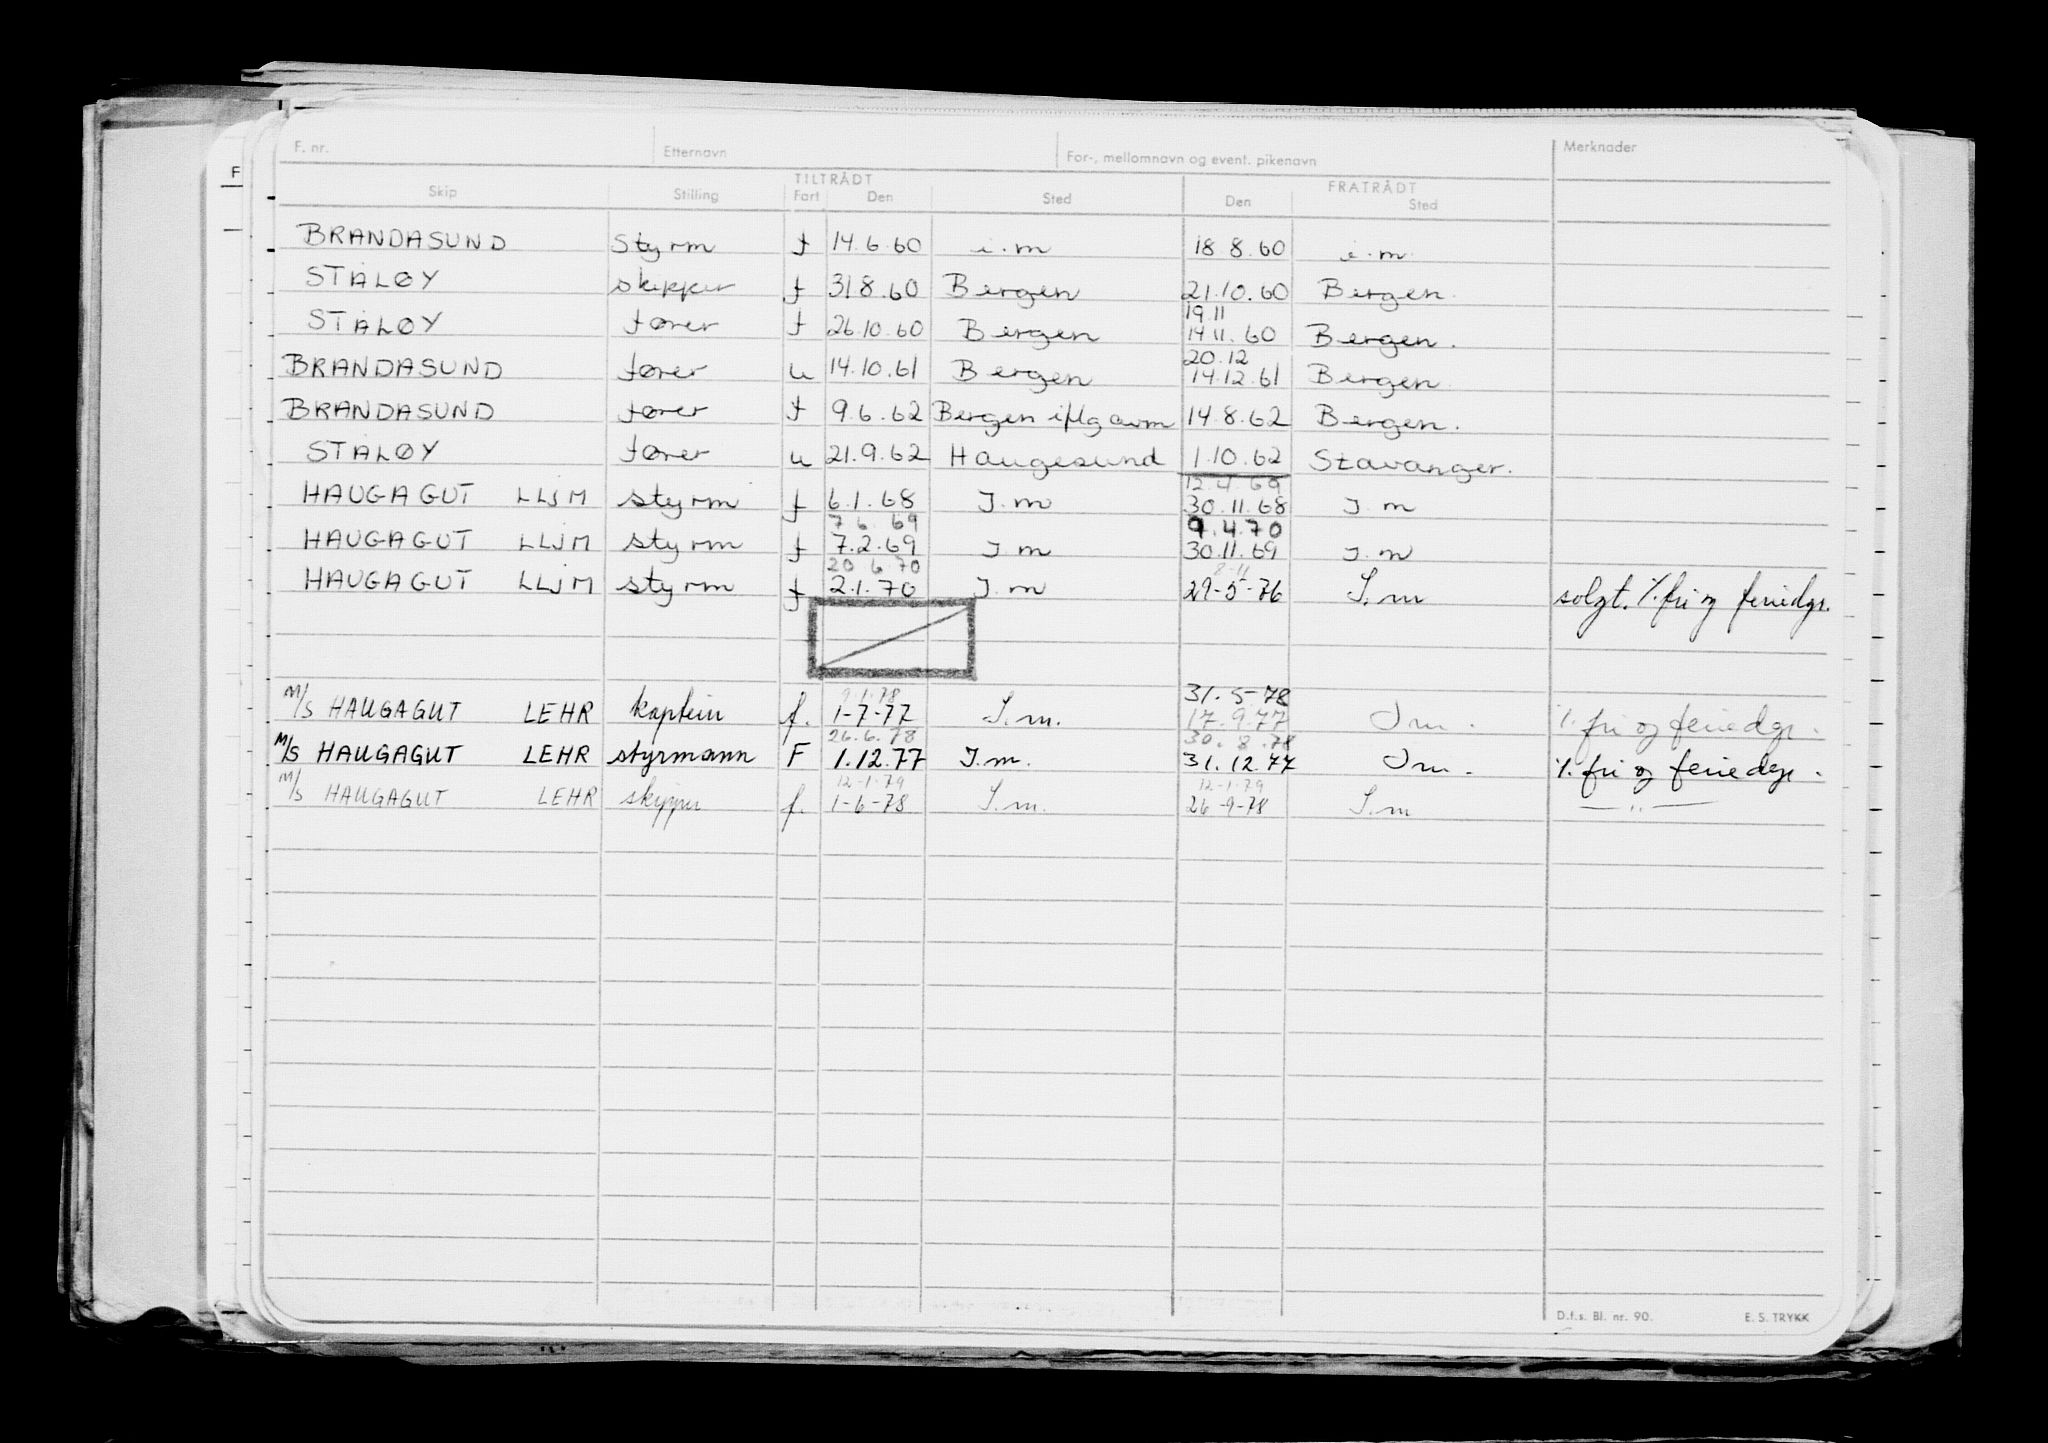 F
F. nr. Etternavn For-, mellomnavn og event. pikenavn Merknader
TILTRÅDT FRATRÅDT
Skip Stilling Fart Den Sted Den Sted
BRANDASUND Styrm f 14.6.60 i.m 18 8.60 i.m.
STÅLØY skipper f 318.60 Bergen 21.10.60 Bergen.
19.11
STÅLØY fører f 26.10.60 Bergen 14 11.60 Bergen.
20.12
BRANDASUND fører u 14.10.61 Bergen 14.12.61 Bergen
BRANDASUND fører f 9.6.62 Bergen iflg avm 14.8.62 Bergen.
STÅLØY fører u 21.9.62 Haugesund 1.10.62 Stavanger.
12.4.69
HAUGAGUT LLJM styrm f 6.1.68 I.m 30.11.68 I.m
7 6 69 9.4.70
HAUGAGUT LLJM styrm f 7.2.69 I.m 30.11.69 I.m
20 6.70 8-11
HAUGAGUT LLJM styrm f 2.1.70 I.m 29-5-76 I.m solgt. %.fri og feriedgr.
9.1.78 31.5-78
M/S HAUGAGUT LEHR kaptein f. 1-7-77 I.m. 17.9.77 Im. %.fri og feriedgr.
26.6.78 30.8.78
M/S HAUGAGUT LEHR styrmann F 1.12.77 I.m. 31.12.77 Im. %.fri og feriedgr.
12-1-79 12-1-79
M/S HAUGAGUT LEHR skipper f. 1-6-78 I.m. 26-9-78 I.m — " —
D.f.s. Bl. nr. 90. E. S. TRYKK